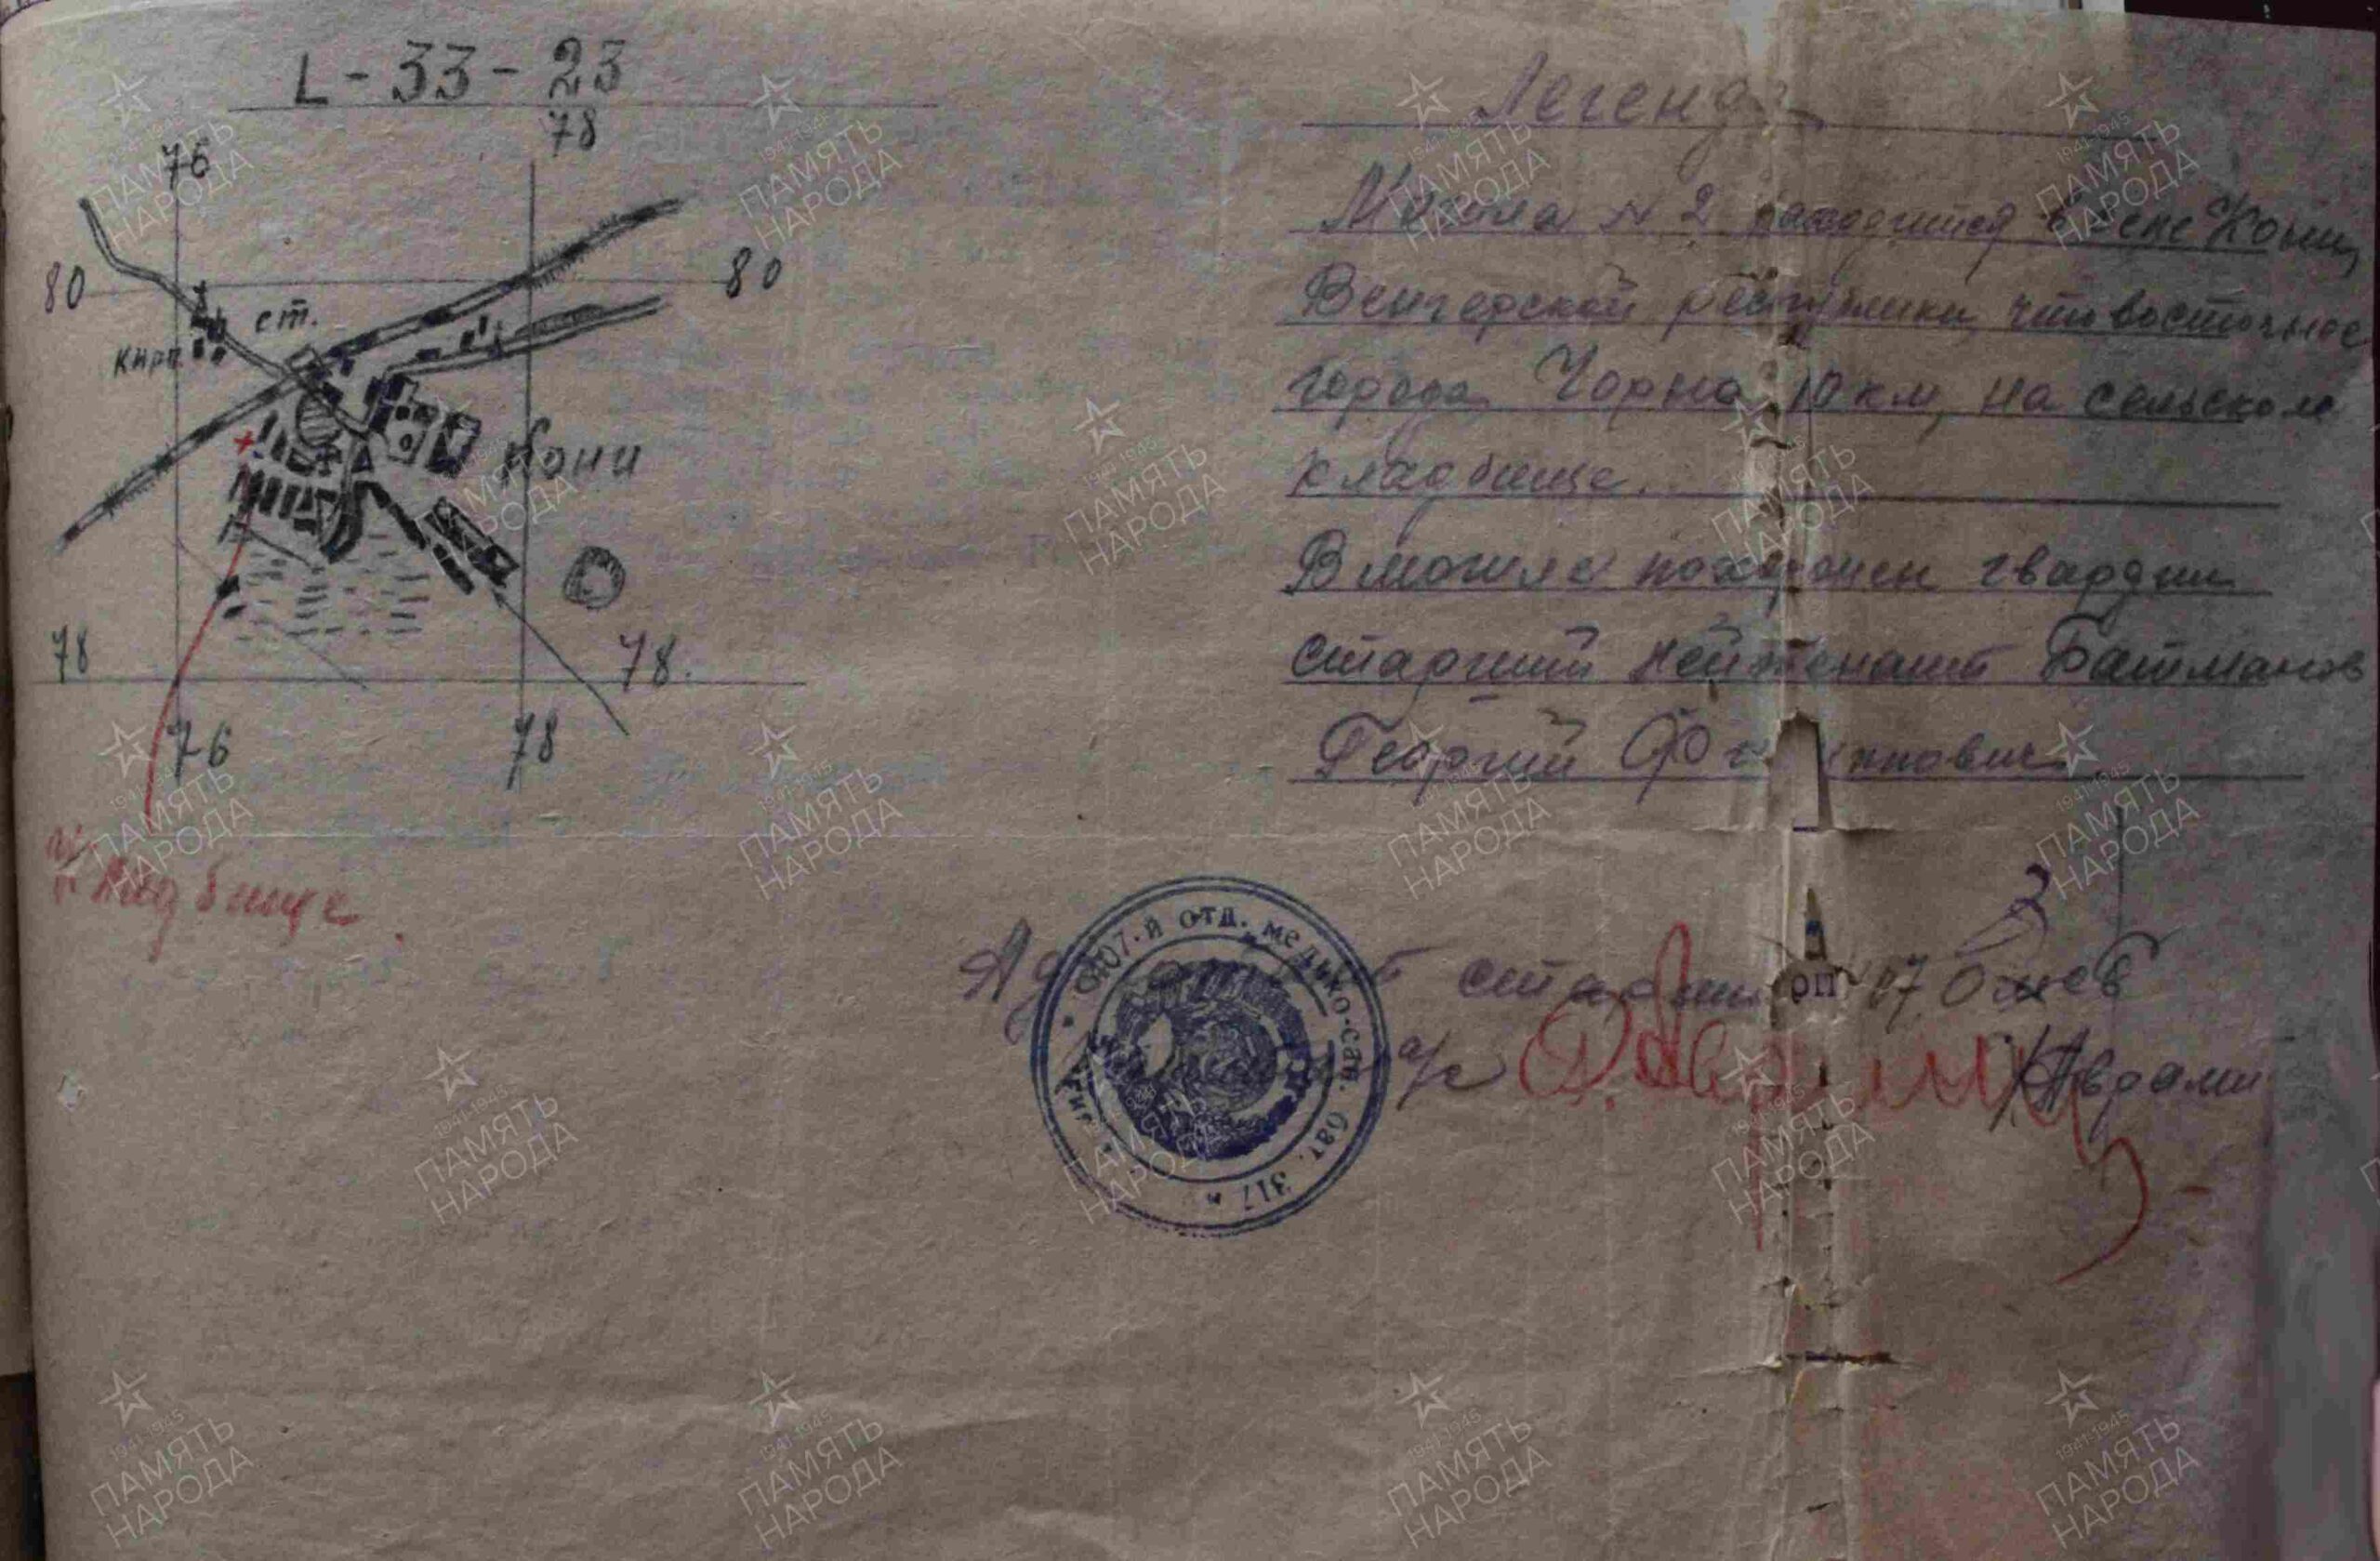 L-33-23
76
78
80
80
ст.
Кирп.
Кони
78
78.
76
78
Кладбище.
Легенда
Могила № 2 находится в селе Кони,
Венгерской республики, что восточнее
города Чорна 10 км, на сельском
кладбище.
В могиле похоронен гвардии
старший лейтенант Батманов
Георгий
старши 107 ОМСБ
а/с
/Аврами
107-й отд. медико-сан. бат. 317
ПАМЯТЬ НАРОДА
1941-1945